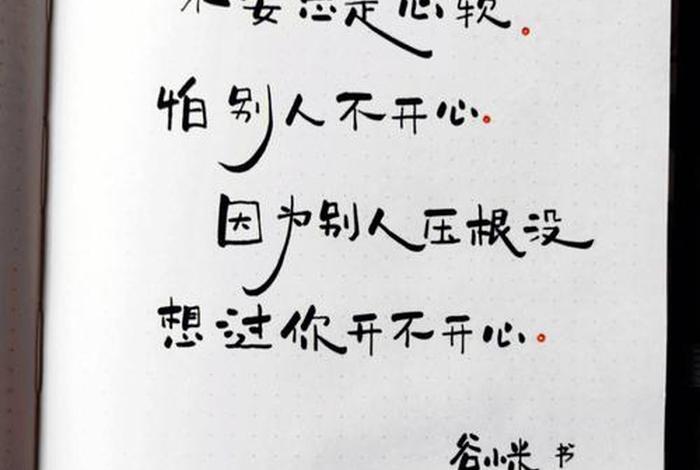 不要总是心软。
怕别人不开心。
因为别人压根没
想过你开不开心。
谷小米 书